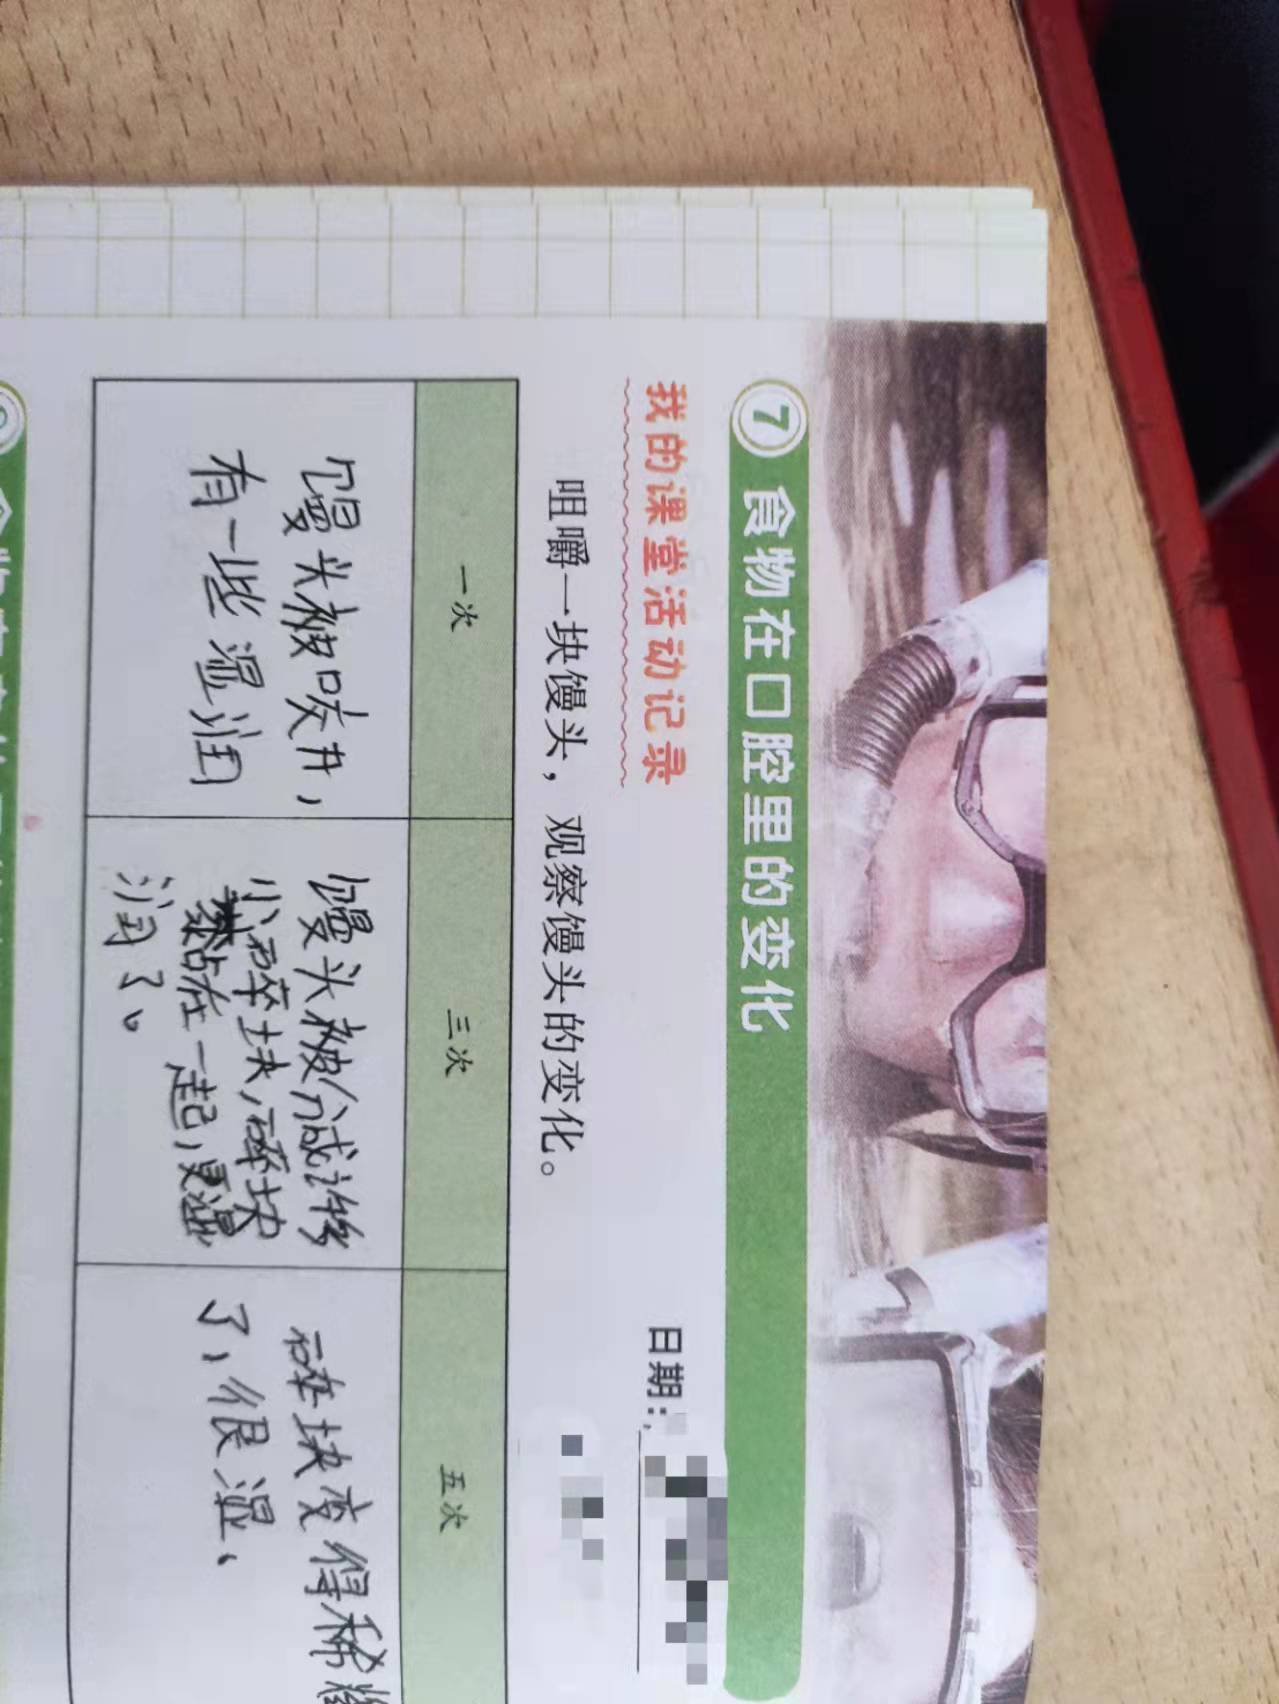 7 食物在口腔里的变化
我的课堂活动记录
日期:
咀嚼一块馒头，观察馒头的变化。
一次
三次
五次
馒头被咬开，
有一些湿润
馒头被分成许多
小碎块，碎块
黏在一起，更湿
润了。
碎块变得稀
了，很湿、